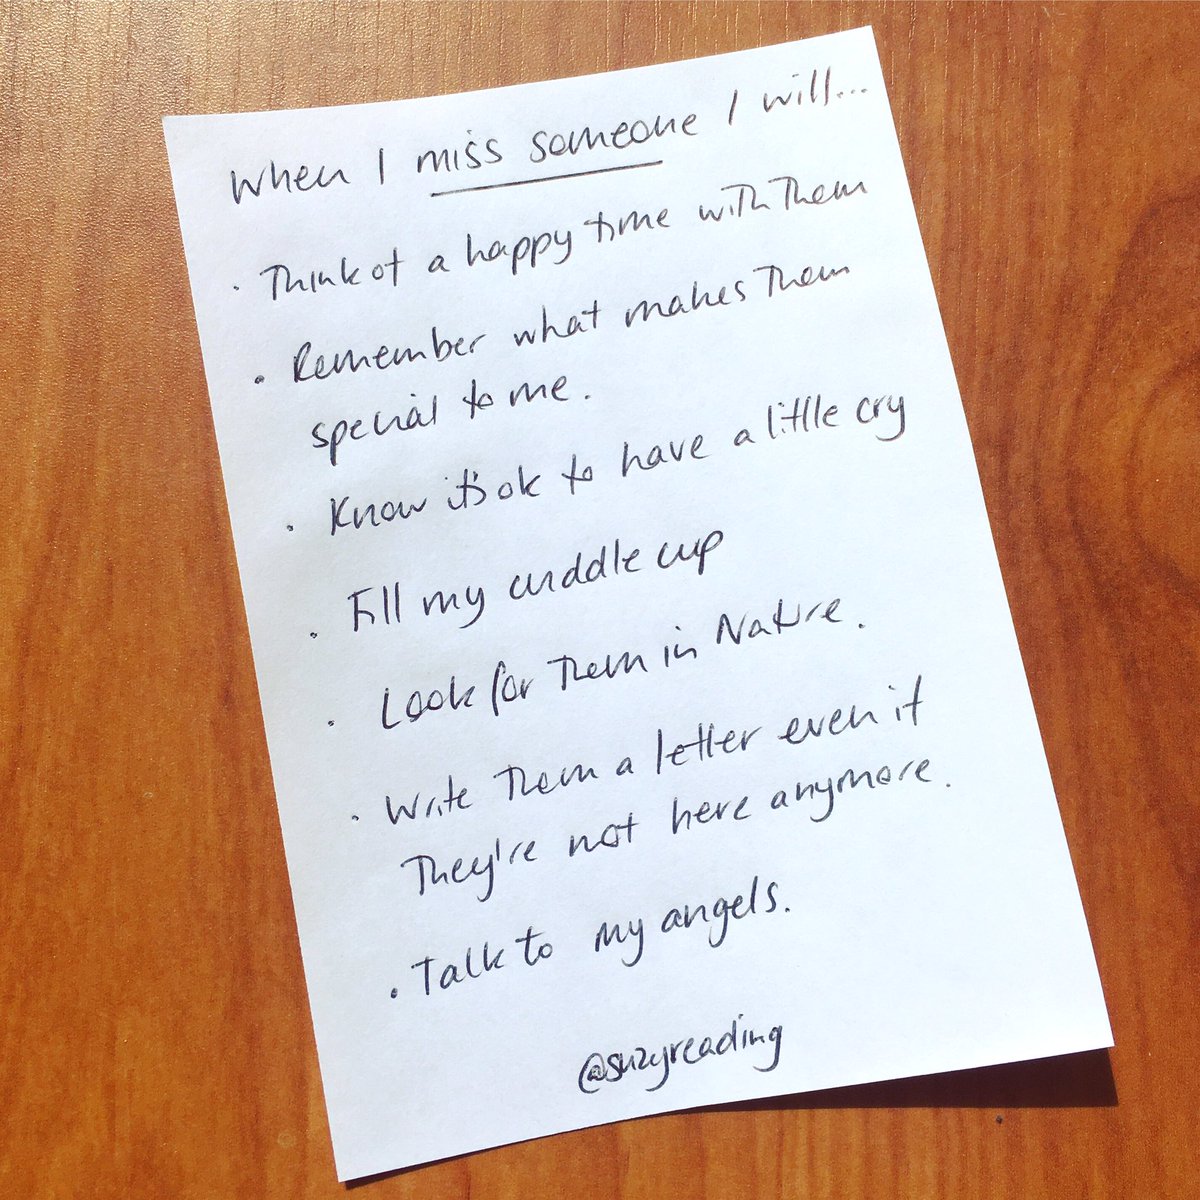 When I miss someone I will...
· Think of a happy time with them
· Remember what makes them
special to me.
· Know it's ok to have a little cry
· Fill my cuddle cup
· Look for them in Nature.
· Write them a letter even if
they're not here anymore.
· Talk to my angels.
@suzyreading